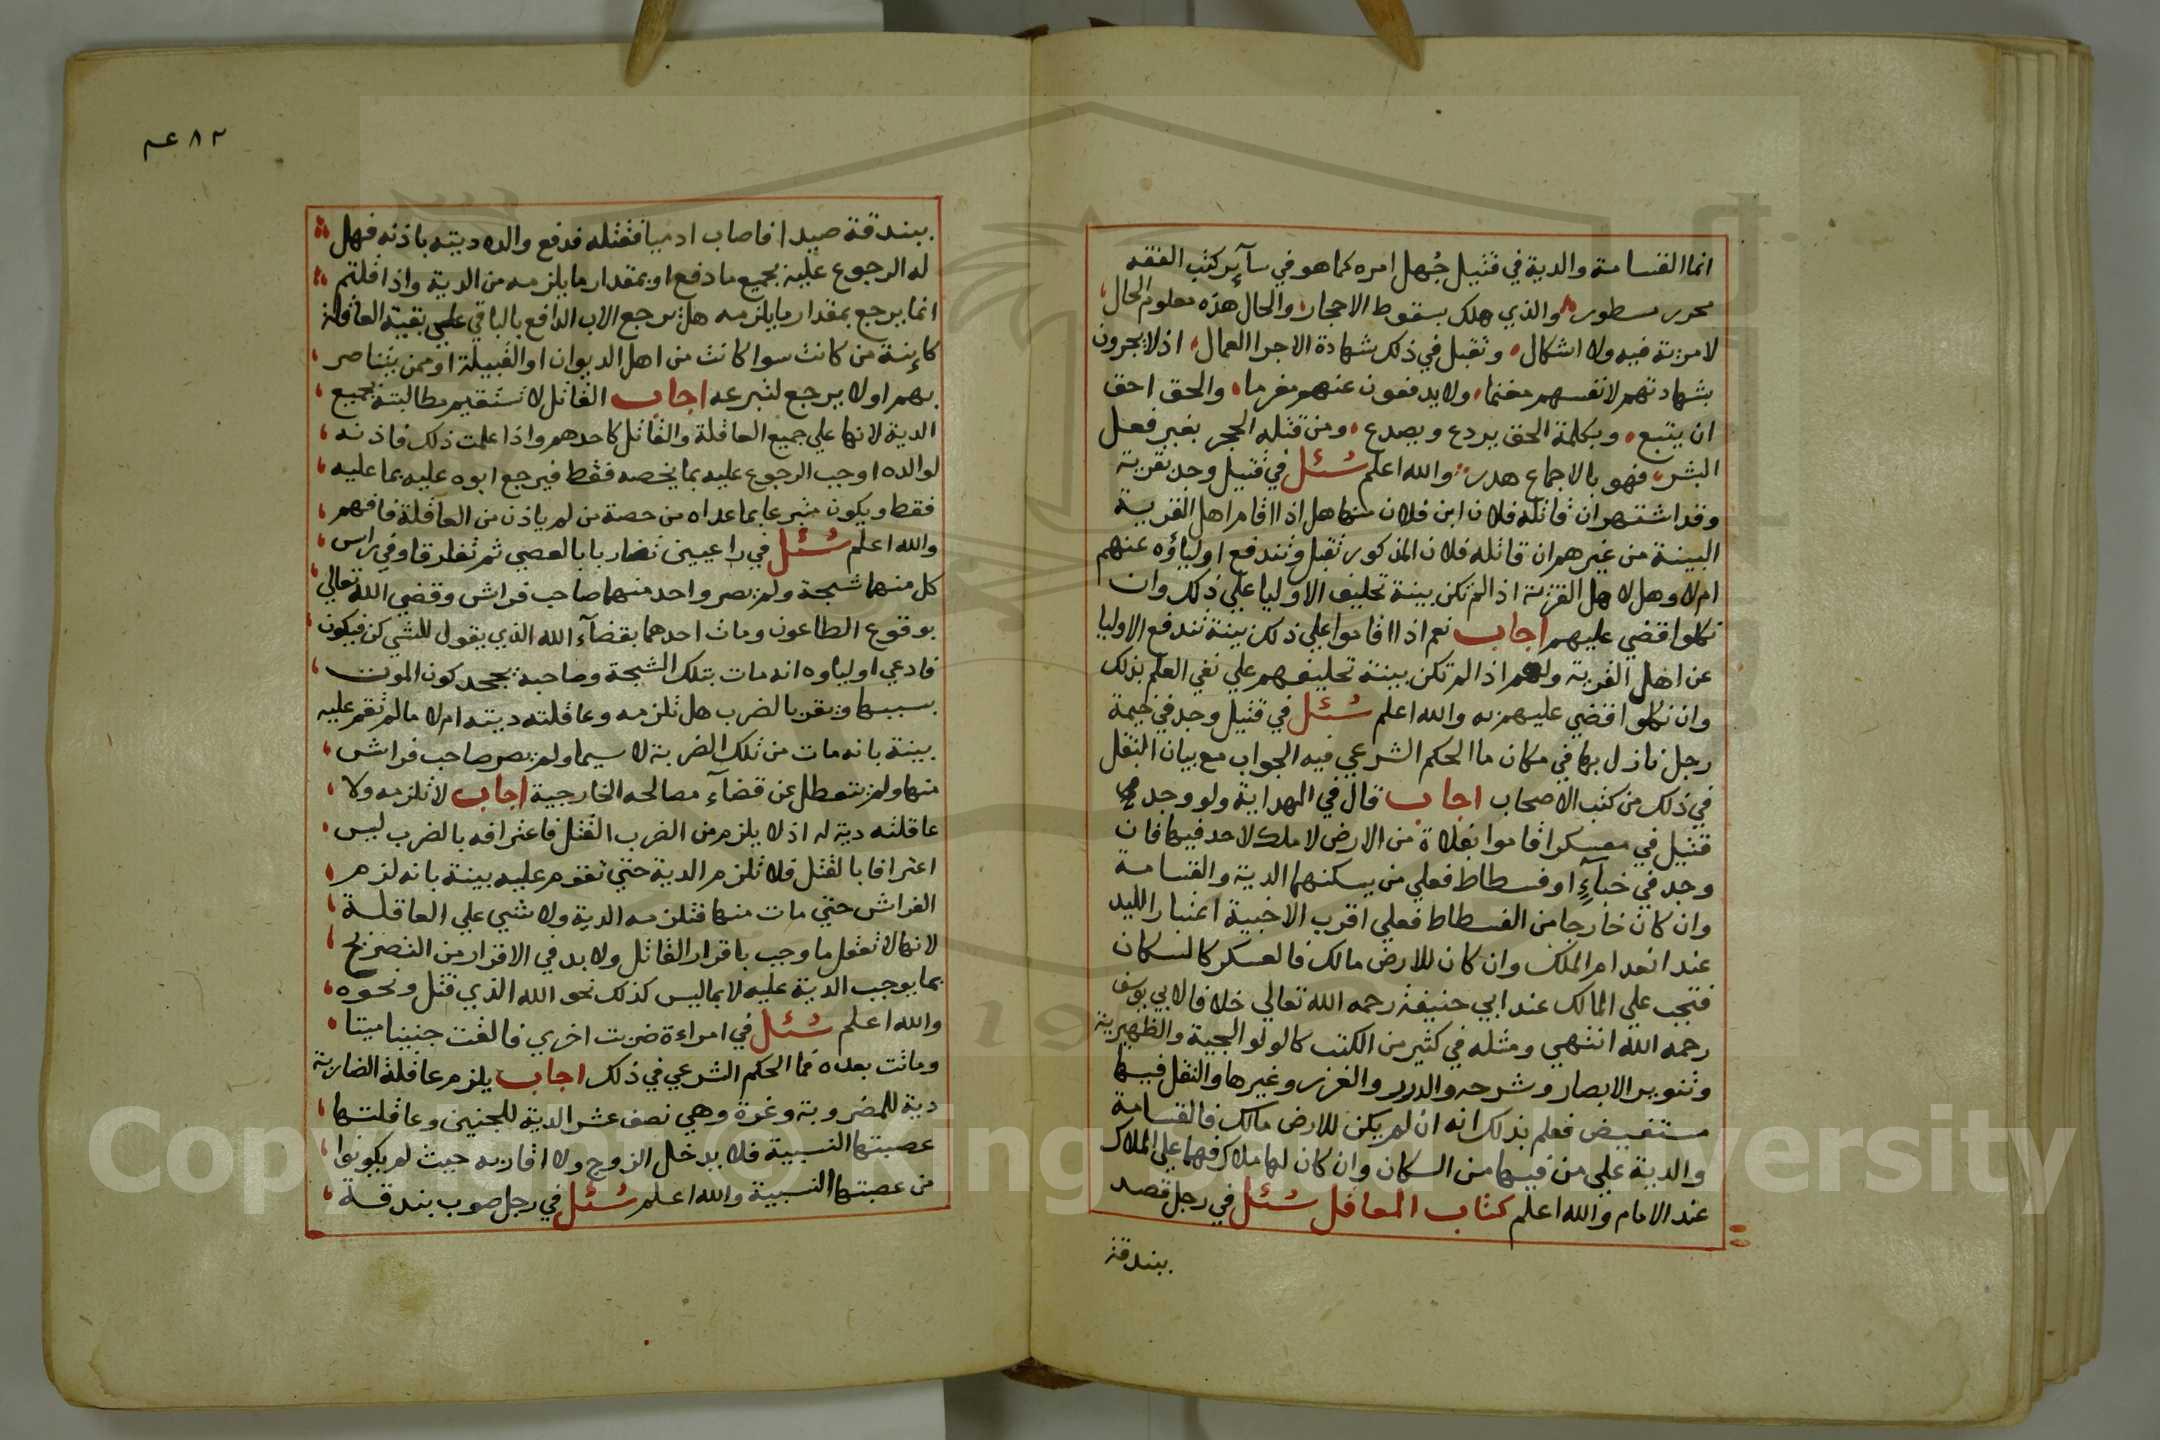 انما القسامة والدية في قتيل جُهل امره كما هو في سآير كتب الفقه
محرر مسطور والذي هلك بسقوط الاحجار والحال هذه معلوم الحال
لا مزية فيه ولا اشكال وتقبل في ذلك شهادة الاجرا العمال اذ لا يجرون
بشهادتهم لانفسهم مغنما ولا يدفعون عنهم مغرما والحق احق
ان يتبع وبكلمة الحق يردع ويصدع ومن قتله الحجر بغير فعل
البشر فهو بالاجماع هدر والله اعلم سُئل في قتيل وجد بقرية
وقد اشتهر ان قاتله فلان ابن فلان منها هل اذا اقام اهل القرية
البينة من غيرهم ان قاتله فلان المذكور تقبل وتندفع اولياؤه عنهم
ام لا وهل لاهل القرية اذا لم تكن بينة تحليف الاوليا علي ذلك وان
نكلوا قضي عليهم اجاب نعم اذا اقاموا علي ذلك بينة تندفع الاوليا
عن اهل القرية ولهم اذا لم تكن بينة تحليفهم علي نفي العلم بذلك
وان نكلوا قضي عليهم به والله اعلم سُئل في قتيل وجد في خيمة
رجل نازل بها في مكان ما الحكم الشرعي فيه الجواب مع بيان النقل
في ذلك من كتب الاصحاب اجاب قال في الهداية ولو وجد
قتيل في معسكر اقاموا بفلاة من الارض لا ملك لاحد فيها فان
وجد في خبآءٍ او فسطاط فعلي من يسكنهما الدية والقسامة
وان كان خارجا من الفسطاط فعلي اقرب الاخبية اعتبارا لليد
عند انعدام الملك وان كان للارض مالك فالعسكر كالسكان
فتجب علي المالك عند ابي حنيفة رحمه الله تعالي خلافا لابي يوسف
رحمه الله انتهي ومثله في كثير من الكتب كالولوالجية والظهيرية
وتنوير الابصار وشرحه والدرر والغرر وغيرها والنقل فيها
مستفيض فعلم بذلك انه ان لم يكن للارض مالك فالقسامة
والدية علي من فيها من السكان وان كان لها ملاك فهما علي الملاك
عند الامام والله اعلم كتاب المعاقل سُئل في رجل قصد
ببندقة
٨٢ عم
ببندقة صيدا فاصاب ادميا فقتله فدفع والده ديته باذنه فهل
له الرجوع عليه بجميع ما دفع او بمقدار ما يلزمه من الدية واذا قلتم
انما يرجع بمقدار ما يلزمه هل يرجع الاب الدافع بالباقي علي بقية العاقلة
كاينة من كانت سوا كانت من اهل الديوان او القبيلة او ممن يتناصر
بهم او لا يرجع لتبرعه اجاب القاتل لا تستقيم مطالبته بجميع
الدية لانها علي جميع العاقلة والقاتل كاحدهم واذا علمت ذلك فاذنه
لوالده اوجب الرجوع عليه بما يخصه فقط فيرجع ابوه عليه بما عليه
فقط ويكون متبرعا بما عداه من حصة من لم ياذن من العاقلة فافهم
والله اعلم سُئل في راعيين تضاربا بالعصي ثم تفارقا وفي راس
كل منهما شجة ولم يصر واحد منهما صاحب فراش وقضي الله تعالي
بوقوع الطاعون ومات احدهما بقضآء الله الذي يقول للشي كن فيكون
فادعي اولياوه انه مات بتلك الشجة وصاحبه يجحد كون الموت
بسببها ويقر بالضرب هل تلزمه وعاقلته ديته ام لا ما لم تقم عليه
بينة بانه مات من تلك الضربة لا سيما ولم يصر صاحب فراش
منها ولم يتعطل عن قضآء مصالحه الخارجية اجاب لا تلزمه ولا
عاقلته دية له اذ لا يلزم من الضرب القتل فاعترافه بالضرب ليس
اعترافا بالقتل فلا تلزم الدية حتي تقوم عليه بينة بانه لزم
الفراش حتي مات منها فتلزمه الدية ولا شي علي العاقلة
لانها لا تعقل ما وجب باقرار القاتل ولا بد في الاقرار من التصريح
بما يوجب الدية عليه لا بما ليس كذلك نحو الله الذي قتل ونحوه
والله اعلم سُئل في امراءة ضربت اخري فالقت جنينا ميتا
وماتت بعده فما الحكم الشرعي في ذلك اجاب يلزم عاقلة الضاربة
دية للمضروبة وغرة وهي نصف عشر الدية للجنين وعاقلتها
عصبتها النسبية فلا يدخل الزوج ولا اقاربه حيث لم يكونوا
من عصبتها النسبية والله اعلم سُئل في رجل صوب بندقة
Copyright © King Saud University